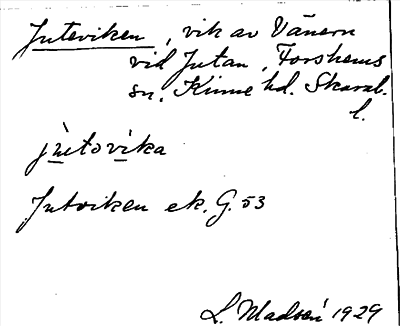 Juteviken, vik av Vänern
vid Jutan, Forshems
sn, Kinne hd. Skarab.
l.
jùtovika
Jutviken ek. G. 53
L. Madsén 1929